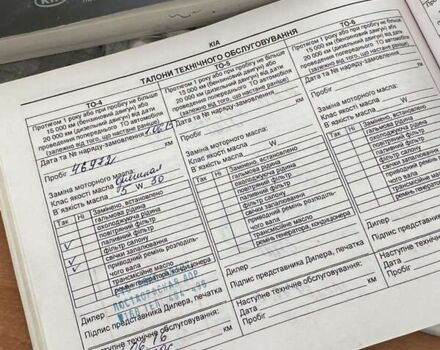 KIA
KIA
ТАЛОНИ ТЕХНІЧНОГО ОБСЛУГОВУВАННЯ
ТО-4
Протягом 1 року або при пробігу не більше
15 000 км (бензиновий двигун) або
20 000 км (дизельний двигун) від дати
проведення попереднього ТО автомобіля
(залежно від того, що настане раніше)
Дата та № наряду-замовлення
Пробіг 46972 км
Заміна моторного масла:
Клас якості масла
В'язкість масла 5 W 30
Так Ні Замінено, встановлено
гальмова рідина
охолоджуюча рідина
повітряний фільтр
паливний фільтр
фільтр салону
свічки запалювання
приводний ремінь розподіль-
чого вала
трансмісійне масло
ремінь генератора, кондиціонера
Дилер
Підпис представника Дилера, печатка
Наступне технічне обслуговування:
ТО-5
Протягом 1 року або при пробігу не більше
15 000 км (бензиновий двигун) або
20 000 км (дизельний двигун) від дати
проведення попереднього ТО автомобіля
(залежно від того, що настане раніше)
Дата та № наряду-замовлення
Пробіг км
Заміна моторного масла:
Клас якості масла
В'язкість масла W
Так Ні Замінено, встановлено
гальмова рідина
охолоджуюча рідина
повітряний фільтр
паливний фільтр
фільтр салону
свічки запалювання
приводний ремінь розподіль-
чого вала
трансмісійне масло
ремінь генератора, кондиціонера
Дилер
Підпис представника Дилера, печатка
Наступне технічне обслуговування:
Дата
Пробіг км
ТО-6
Протягом 1 року або при пробігу не більше
15 000 км (бензиновий двигун) або
20 000 км (дизельний двигун) від дати
проведення попереднього ТО автомобіля
(залежно від того, що настане раніше)
Дата та № наряду-замовлення
Пробіг
Заміна моторного масла:
Клас якості масла
В'язкість масла W
Так Ні Замінено, встановлено
гальмова рідина
охолоджуюча рідина
повітряний фільтр
паливний фільтр
фільтр салону
свічки запалювання
приводний ремінь
чого вала
трансмісійне масло
ремінь генератора
Дилер
Підпис представника
Наступне технічне
Дата
Пробіг